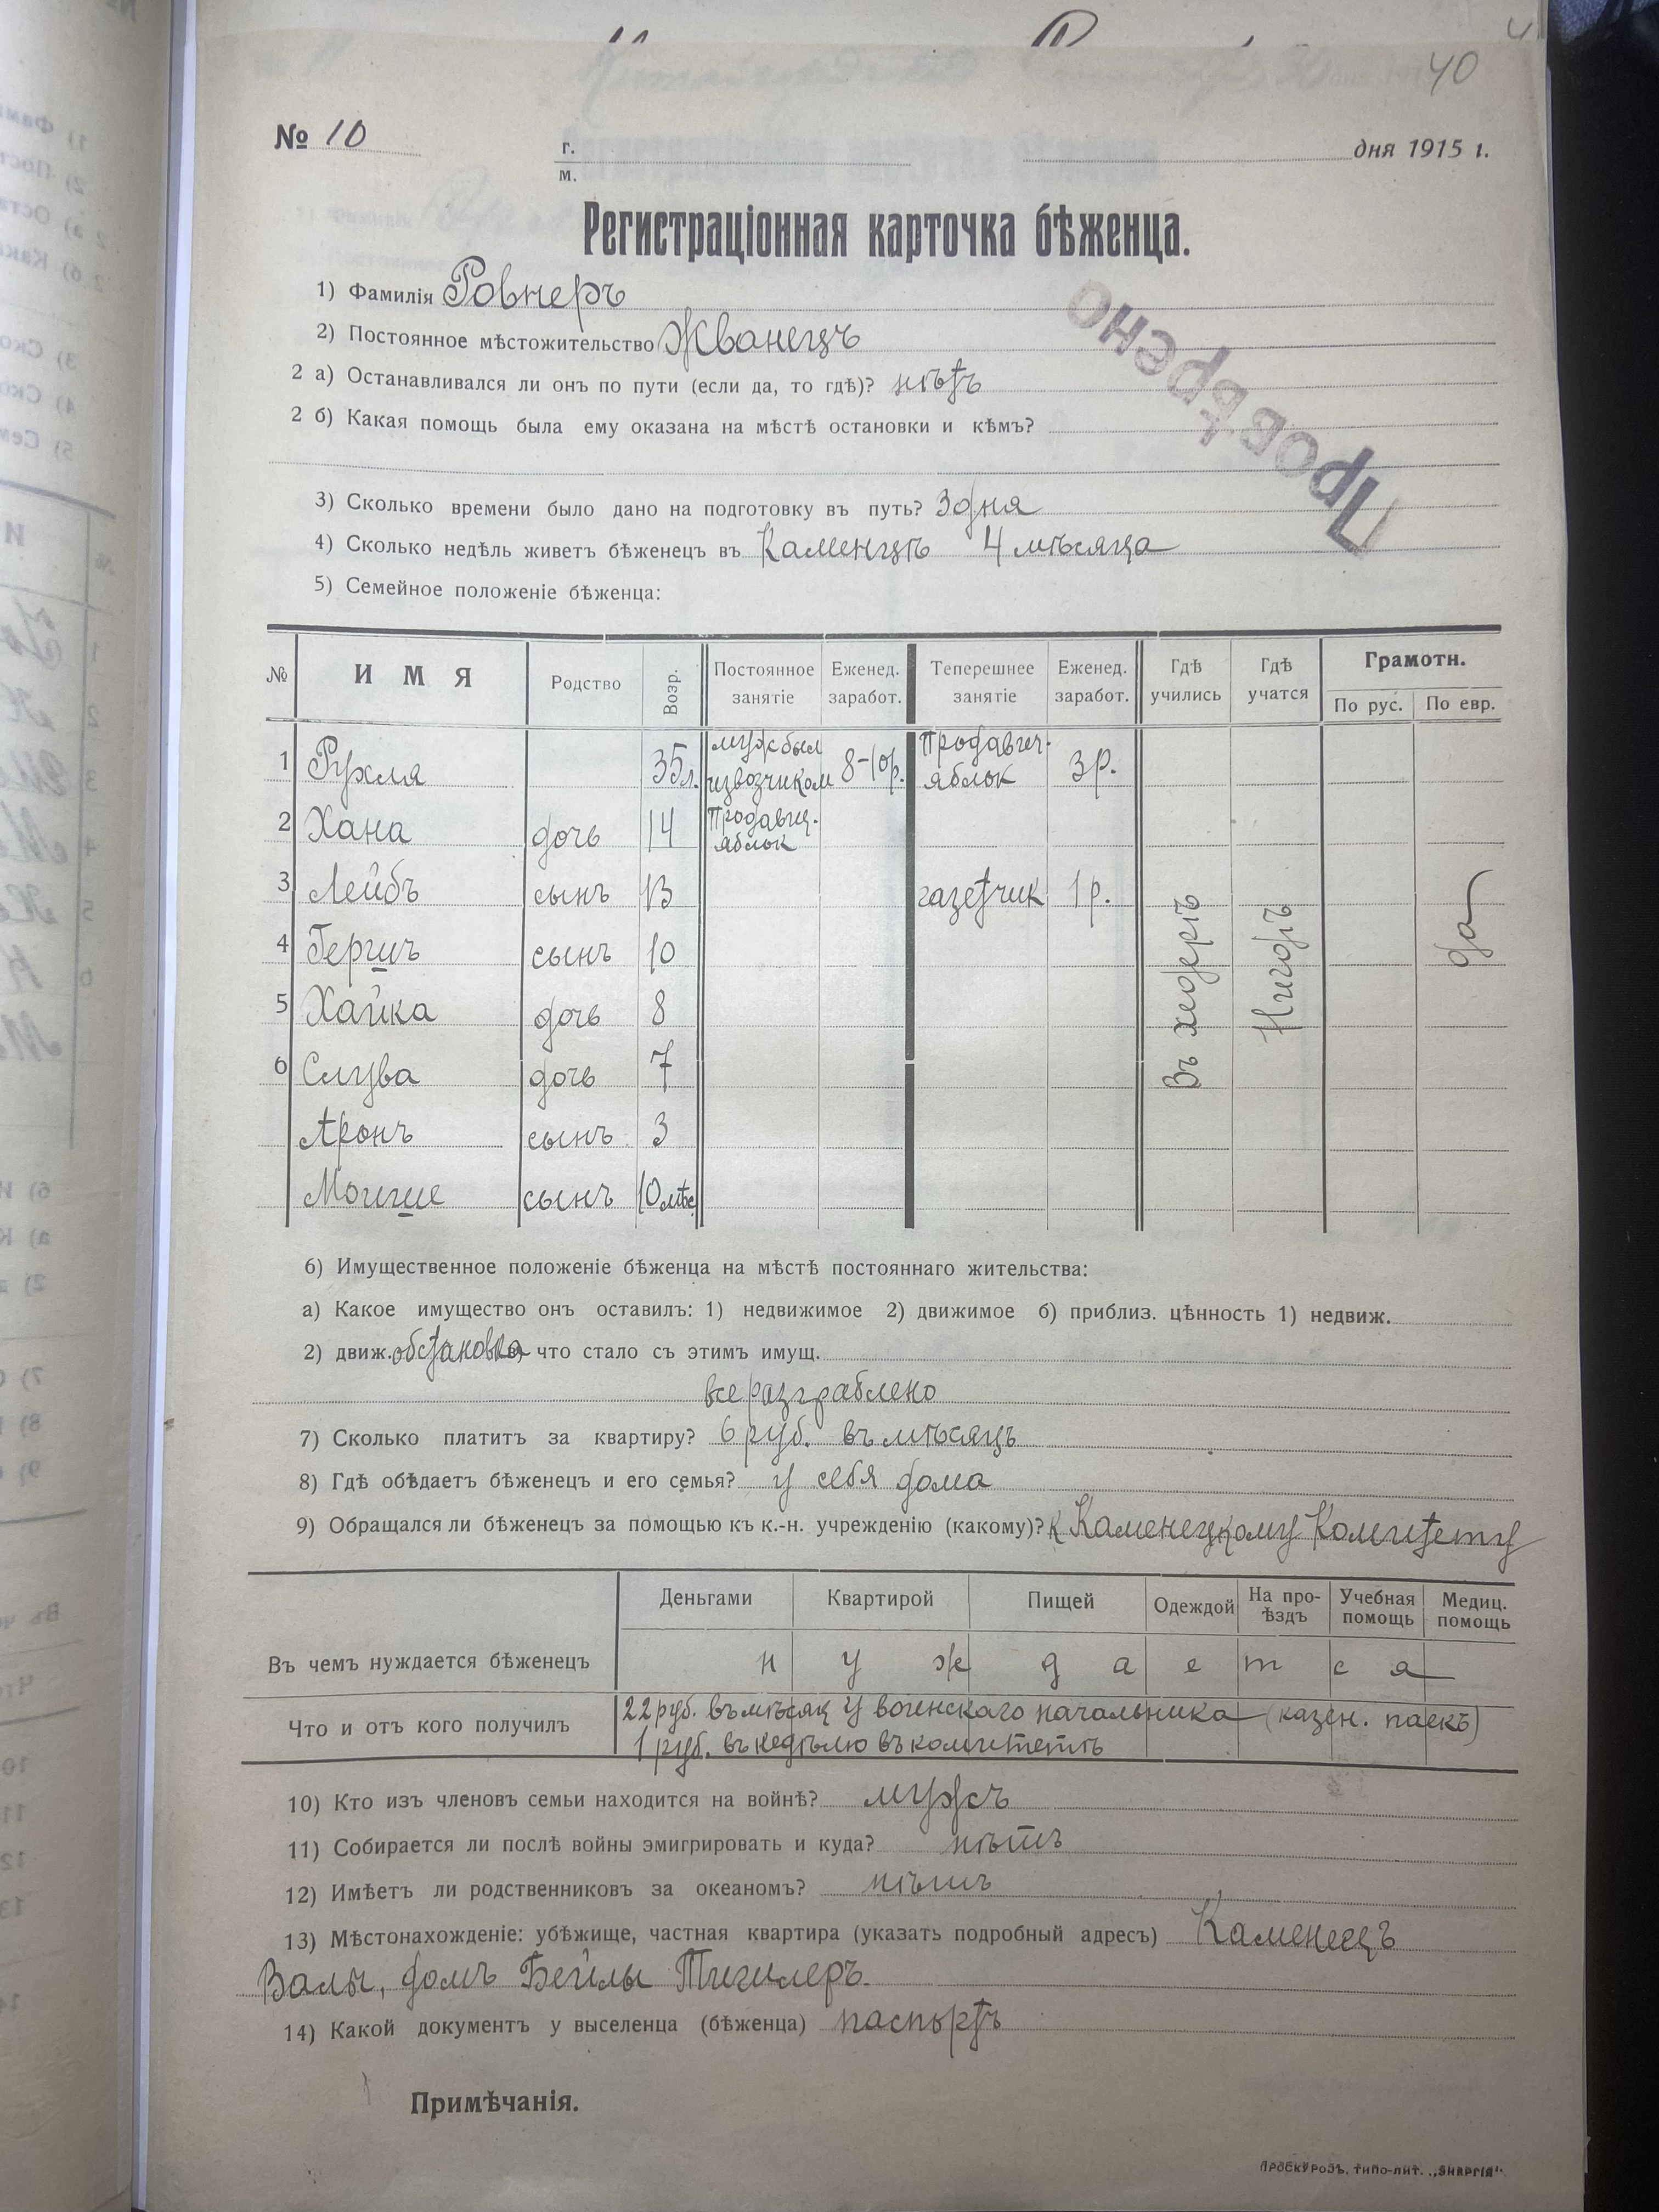 40
№ 10
г.
м.
дня 1915 г.
Регистраціонная карточка бѣженца.
1) Фамилія Ровнеръ
2) Постоянное мѣстожительство Жванецъ
2 а) Останавливался ли онъ по пути (если да, то гдѣ)? нѣтъ
2 б) Какая помощь была ему оказана на мѣстѣ остановки и кѣмъ?
Провѣрено
3) Сколько времени было дано на подготовку въ путь? 3 дня
4) Сколько недѣль живетъ бѣженецъ въ Каменцѣ 4 мѣсяца
5) Семейное положеніе бѣженца:
№ ИМЯ Родство Возр. Постоянное занятіе Еженед. заработ. Теперешнее занятіе Еженед. заработ. Гдѣ учились Гдѣ учатся Грамотн. По рус. По евр.
1 Рухля 35 л. муж был извозчиком 8-10 р. продавич. яблок 3 р.
2 Хана дочь 14 продавщ. яблок
3 Лейбъ сынъ 13 газетчик 1 р.
4 Гершъ сынъ 10
5 Хайка дочь 8
6 Слува дочь 7
Аронъ сынъ 3
Моише сынъ 10 мѣс
Въ хедерѣ
Нигдѣ
да
6) Имущественное положеніе бѣженца на мѣстѣ постояннаго жительства:
а) Какое имущество онъ оставилъ: 1) недвижимое 2) движимое б) приблиз. цѣнность 1) недвиж.
2) движ. обстановка в) что стало съ этимъ имущ.
все разграблено
7) Сколько платитъ за квартиру? 6 руб. въ мѣсяцъ
8) Гдѣ обѣдаетъ бѣженецъ и его семья? у себя дома
9) Обращался ли бѣженецъ за помощью къ к.-н. учрежденію (какому)? к Каменецкому Комитету
Деньгами Квартирой Пищей Одеждой На про-ѣздъ Учебная помощь Медиц. помощь
Въ чемъ нуждается бѣженецъ н у ж д а е т с я
Что и отъ кого получилъ 22 руб. въ мѣсяц у воинскаго начальника (казен. паекъ)
1 руб. въ недѣлю въ комитетѣ
10) Кто изъ членовъ семьи находится на войнѣ? мужъ
11) Собирается ли послѣ войны эмигрировать и куда? нѣтъ
12) Имѣетъ ли родственниковъ за океаномъ? нѣтъ
13) Мѣстонахожденіе: убѣжище, частная квартира (указать подробный адресъ) Каменецъ
Валы, домъ Бейлы Тишлеръ.
14) Какой документъ у выселенца (бѣженца) паспортъ
Примѣчанія.
ПРОСКУРОВЪ, ТИПО-ЛИТ. „ЭНЕРГІЯ“.